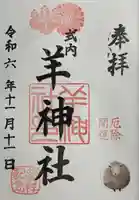 奉拝
厄除
開運
式内
羊神社
令和六年十一月十一日